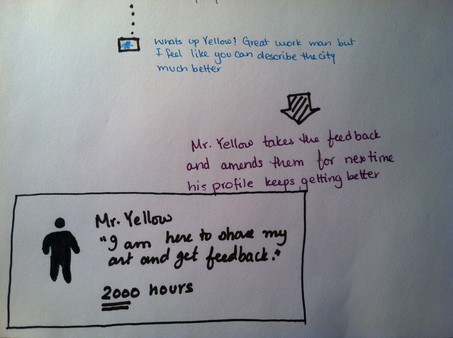 Whats up Yellow! Great work man but
I feel like you can describe the city
much better
Mr. Yellow takes the feedback
and amends them for next time
his profile keeps getting better
Mr. Yellow
"I am here to share my
art and get feedback."
2000 hours